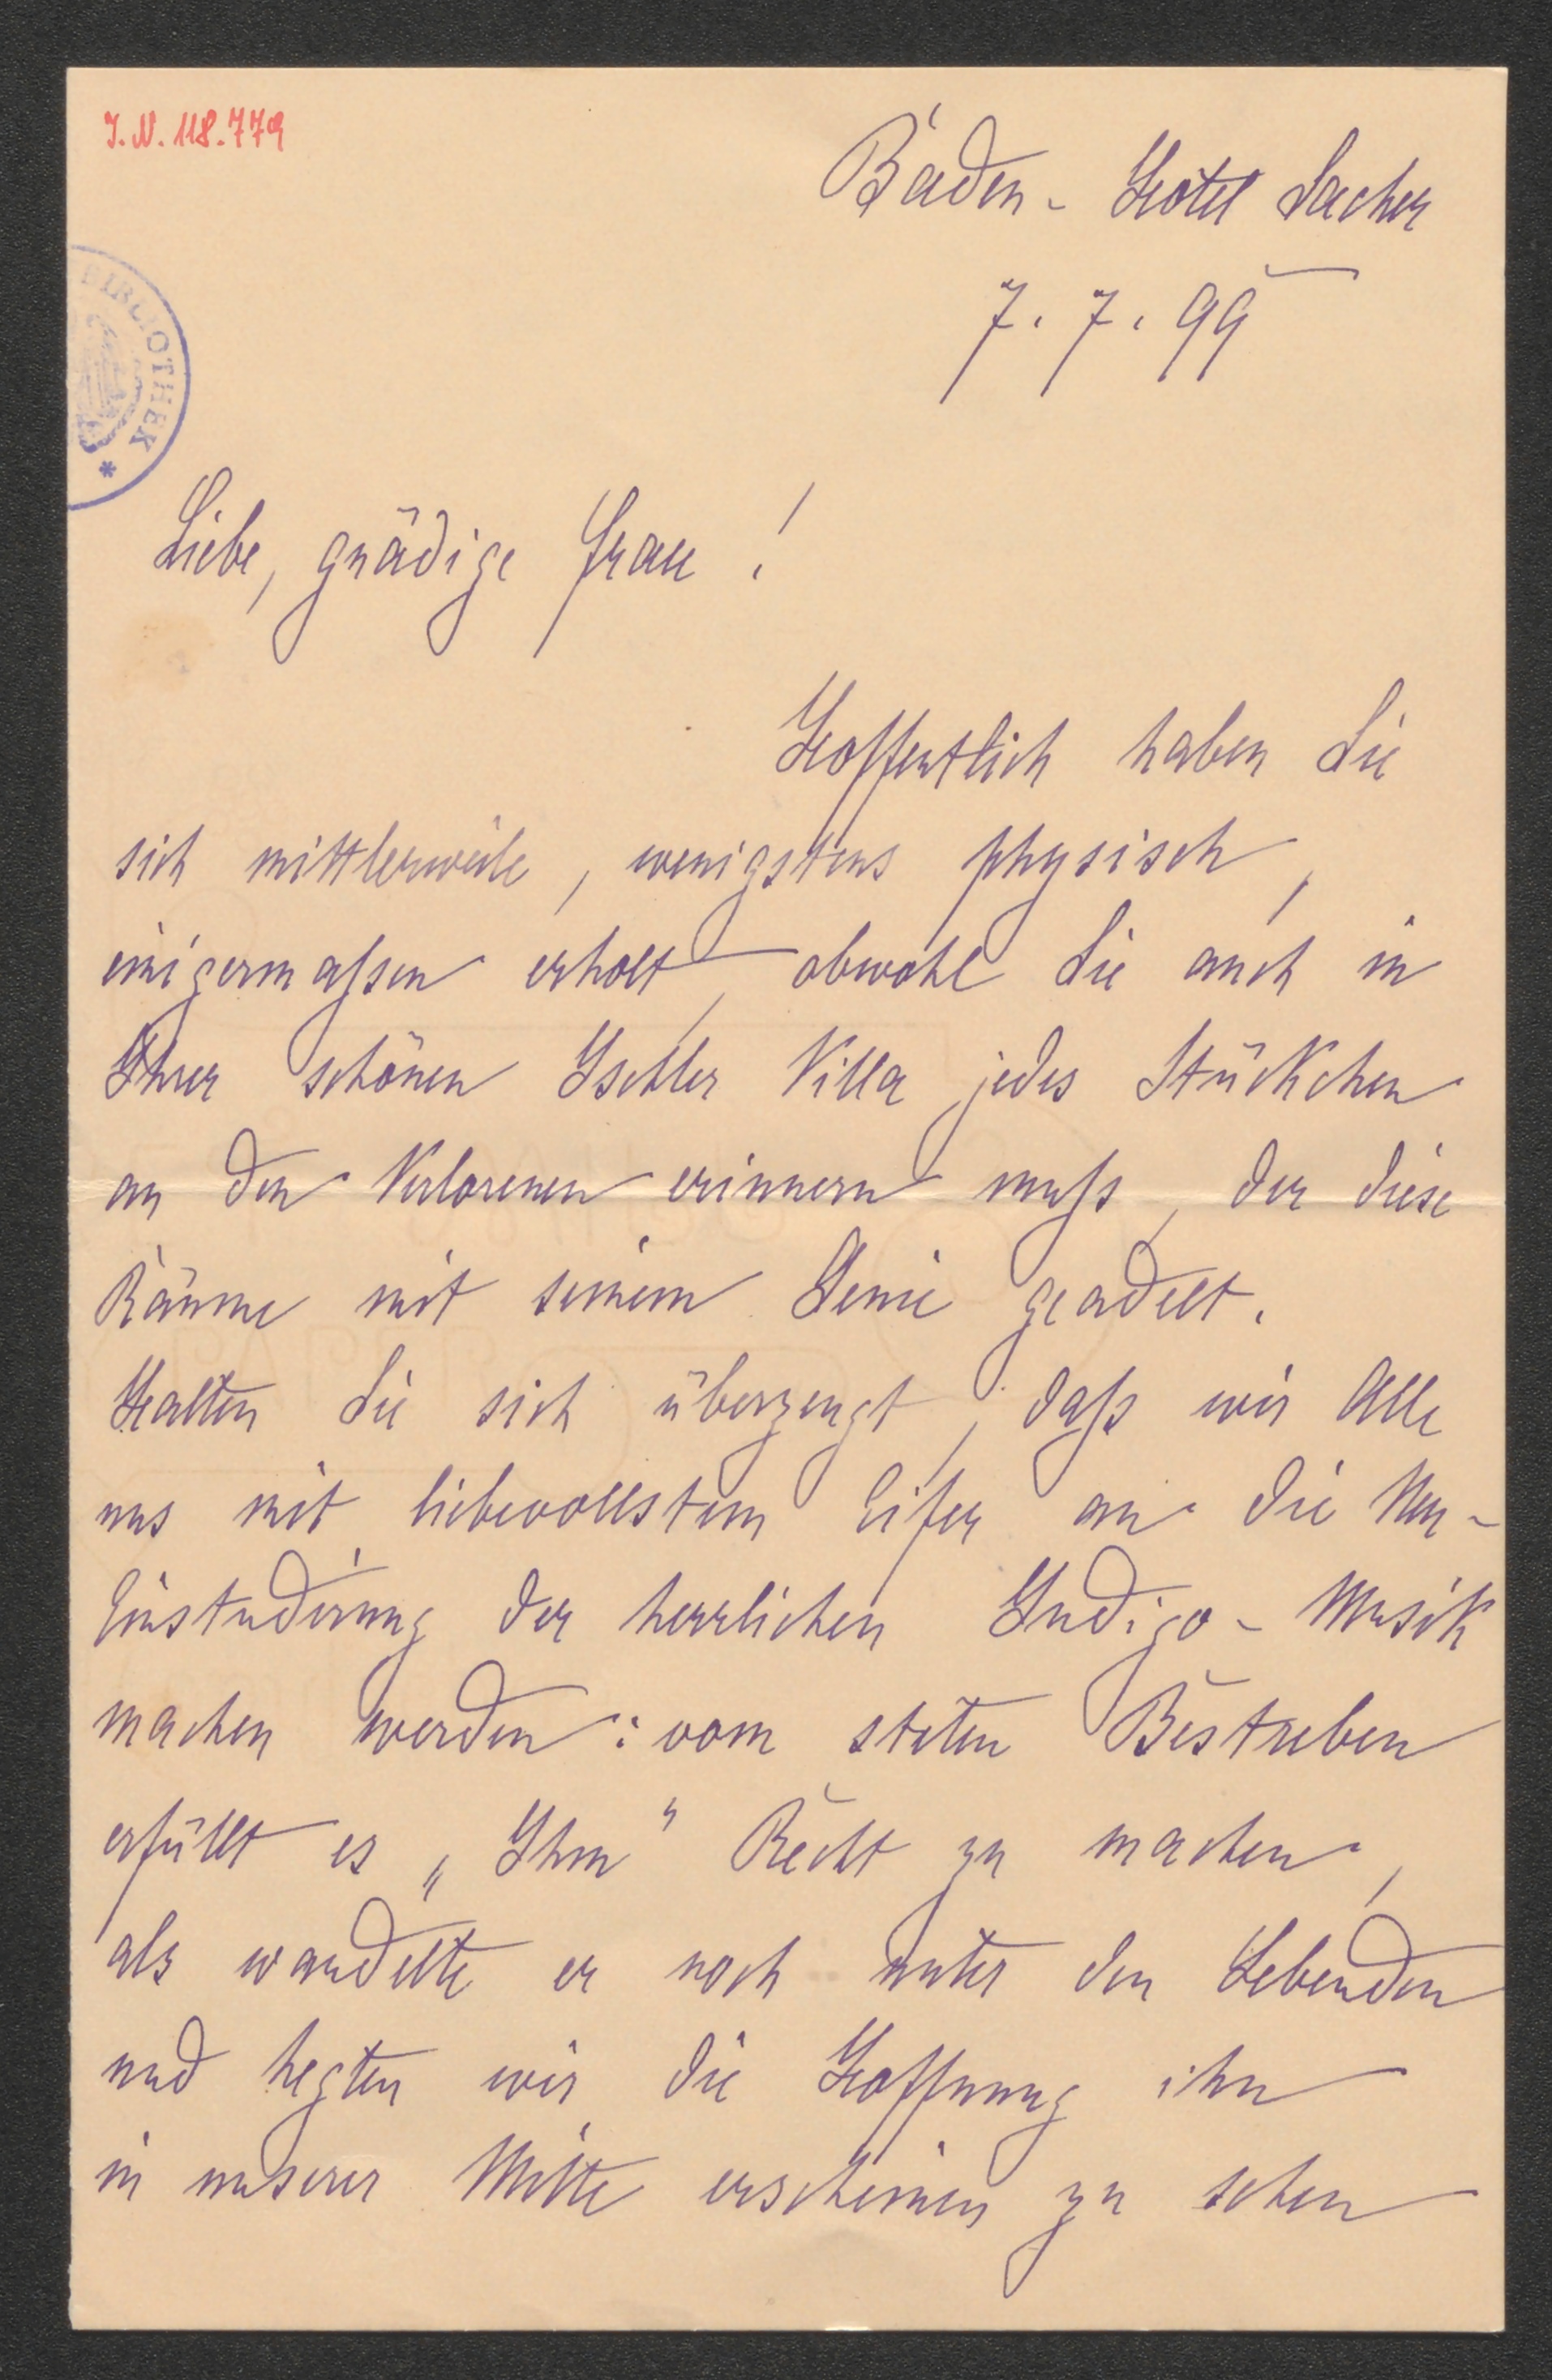 J. N. 118.779
Baden - Hôtel Sacher
7. 7. 99
BIBLIOTHEK *
Liebe, gnädige Frau!
Hoffentlich haben Sie
sich mittlerweile, wenigstens physisch,
einigermaßen erholt, obwohl Sie auch in
Ihrer schönen Ischler Villa jedes Stückchen
an den Verlorenen erinnern muß, der diese
Räume mit seinem Genie geadelt.
Halten Sie sich überzeugt, daß wir Alle
uns mit liebevollstem Eifer an die Neu-
Einstudirung der herrlichen Indigo - Musik
machen werden: vom steten Bestreben
erfüllt es „Ihm“ Recht zu machen,
als wandelte er noch unter den Lebenden
und hegten wir die Hoffnung ihn
in unserer Mitte erscheinen zu sehen